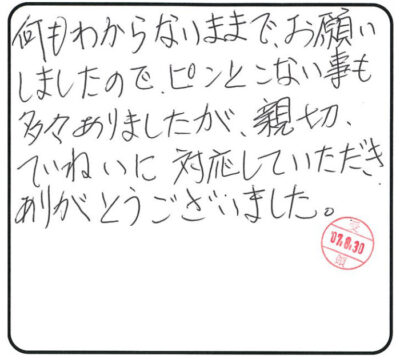 何もわからないままで、お願い
しましたので、ピンとこない事も
多々ありましたが、親切、
ていねいに 対応していただき
ありがとうございました。
受
07.8.30